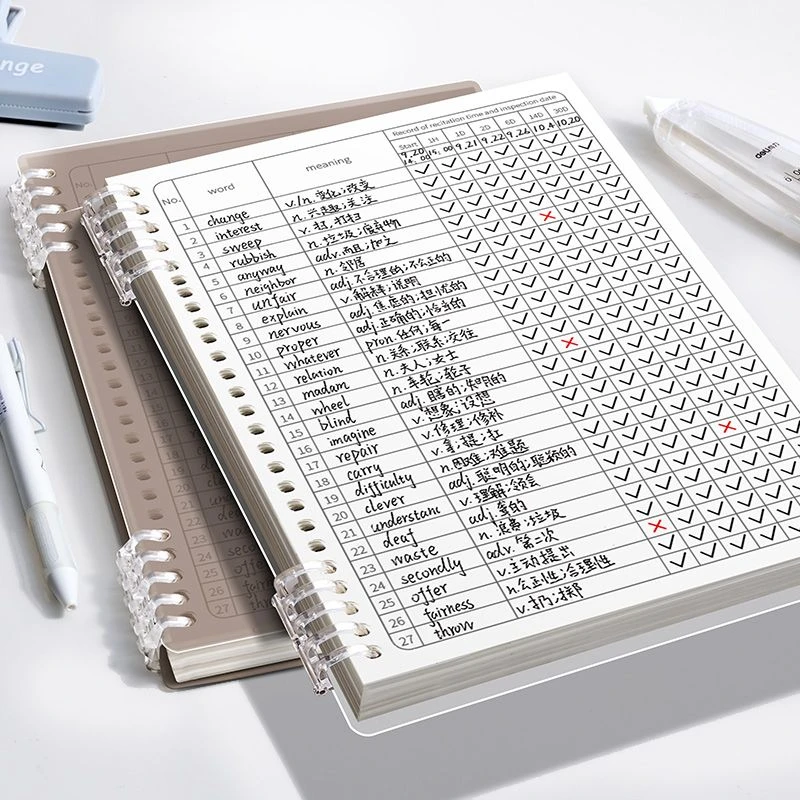 nge
deli
No. word meaning Record of recitation time and inspection date
Start 1H 1D 2D 6D 14D 30D
9.20 14:00 15:00 9.21 9.22 9.26 10.4 10.20
1 change v./n. 变化;改变
2 interest n. 兴趣;关注
3 sweep v. 扫,打扫
4 rubbish n. 垃圾;废弃物
5 anyway adv.而且;加之
6 neighbor n. 邻居
7 unfair adj.不合理的;不公正的
8 explain v.解释;说明
9 nervous adj.焦虑的;担忧的
10 proper adj.正确的;恰当的
11 whatever pron.任何;每一
12 relation n.关系;联系;交往
13 madam n.夫人;女士
14 wheel n.车轮;轮子
15 blind adj.瞎的;失明的
16 imagine v.想象;设想
17 repair v.修理;修补
18 carry v.拿;提;扛
19 difficulty n.困难;难题
20 clever adj.聪明的;聪颖的
21 understand v.理解;领会
22 deaf adj.聋的
23 waste n.浪费;垃圾
24 secondly adv.第二次
25 offer v.主动提出
26 fairness n.公正性;合理性
27 throw v.扔;掷
No.